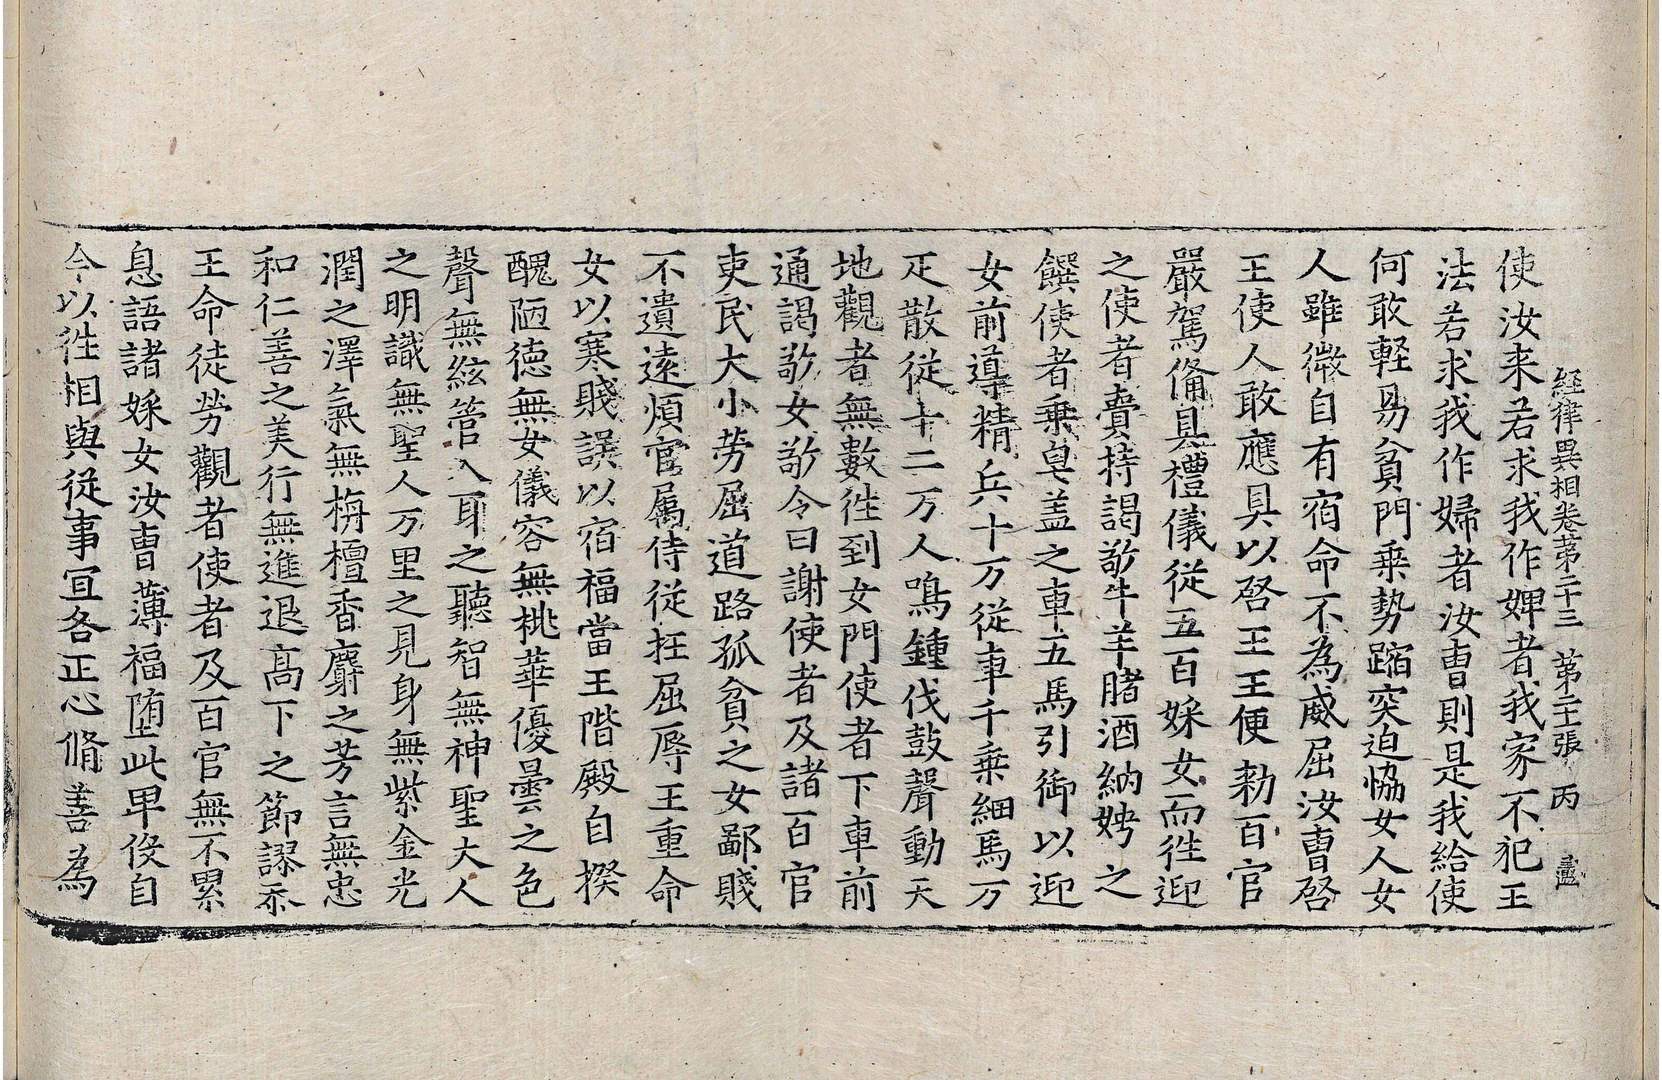 経律異相卷第二十三 第二十張 丙
使汝来若求我作婢者我家不犯王
法若求我作婦者汝曺則是我給使
何敢軽易貧門乗勢蹹突迫恊女人女
人雖微自有宿命不為威屈汝曺啓
王使人敢應具以啓王王便勑百官
嚴駕俻具禮儀従五百婇女而徃迎
之使者賷持謁㪣牛羊賭酒納娉之
饌使者乗皁盖之車五馬引御以迎
女前導精兵十万従車千乗細馬万
疋散従十二万人鳴鍾伐鼓聲動天
地觀者無數徃到女門使者下車前
通謁㪣女㪣令曰謝使者及諸百官
吏民大小勞屈道路孤貧之女鄙賤
不遺遠煩官属侍従抂屈辱王重命
女以寒賤誤以宿福當王階殿自揆
醜陋徳無女儀容無桃華優曇之色
聲無絃管入耳之聽智無神聖大人
之明識無聖人万里之見身無紫金光
潤之澤氣無栴檀香麝之芳言無忠
和仁善之美行無進退髙下之節謬忝
王命徒勞觀者使者及百官無不累
息語諸婇女汝曺薄福堕此卑伇自
今以徃相與従事冝各正心脩善為